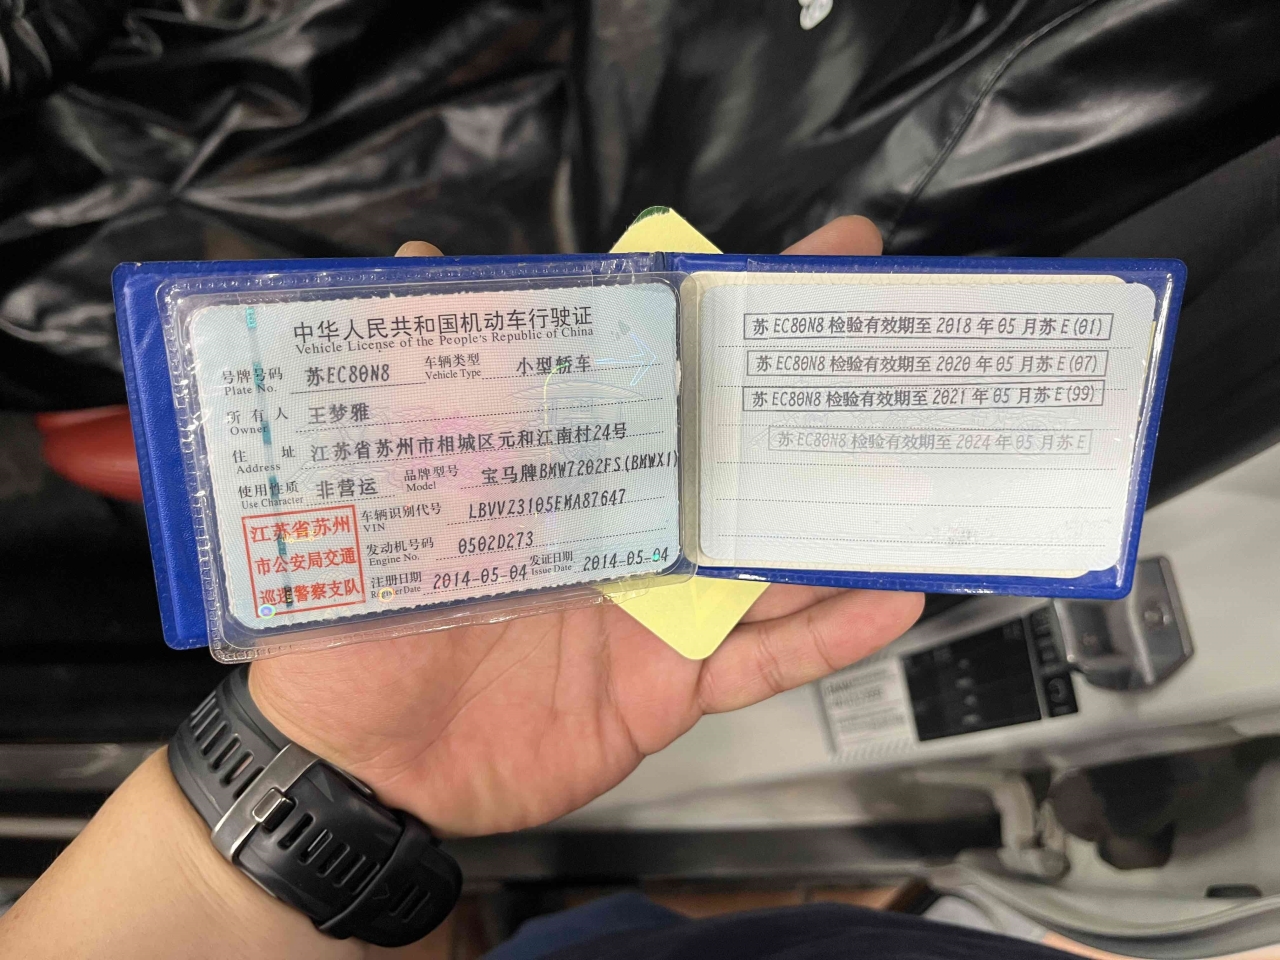 中华人民共和国机动车行驶证
Vehicle License of the People's Republic of China
号牌号码 苏EC80N8 车辆类型 小型轿车
Plate No. Vehicle Type
所有人 王梦雅
Owner
住址 江苏省苏州市相城区元和江南村24号
Address
使用性质 非营运 品牌型号 宝马牌BMW7202FS(BMWX1)
Use Character Model
江苏省苏州
市公安局交通
巡逻警察支队
车辆识别代号 LBVVZ3105EMA87647
VIN
发动机号码 0502D273
Engine No.
注册日期 2014-05-04 发证日期 2014-05-04
Register Date Issue Date
苏EC80N8检验有效期至2018年05月苏E(01)
苏EC80N8检验有效期至2020年05月苏E(07)
苏EC80N8检验有效期至2021年05月苏E(99)
苏EC80N8检验有效期至2024年05月苏E